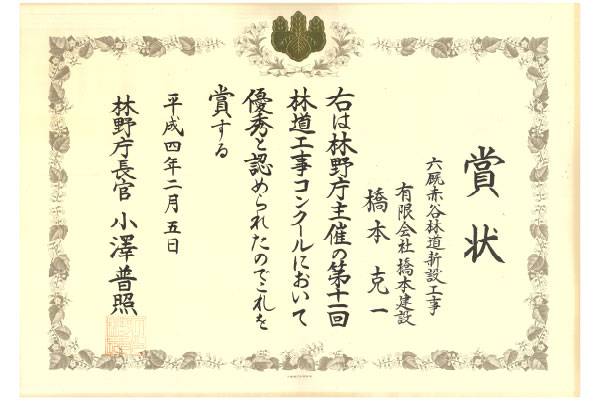 賞状
六厩赤谷林道新設工事
有限会社橋本建設
橋本克一
右は林野庁主催の第十一回
林道工事コンクールにおいて
優秀と認められたのでこれを
賞する
平成四年二月五日
林野庁長官 小澤普照